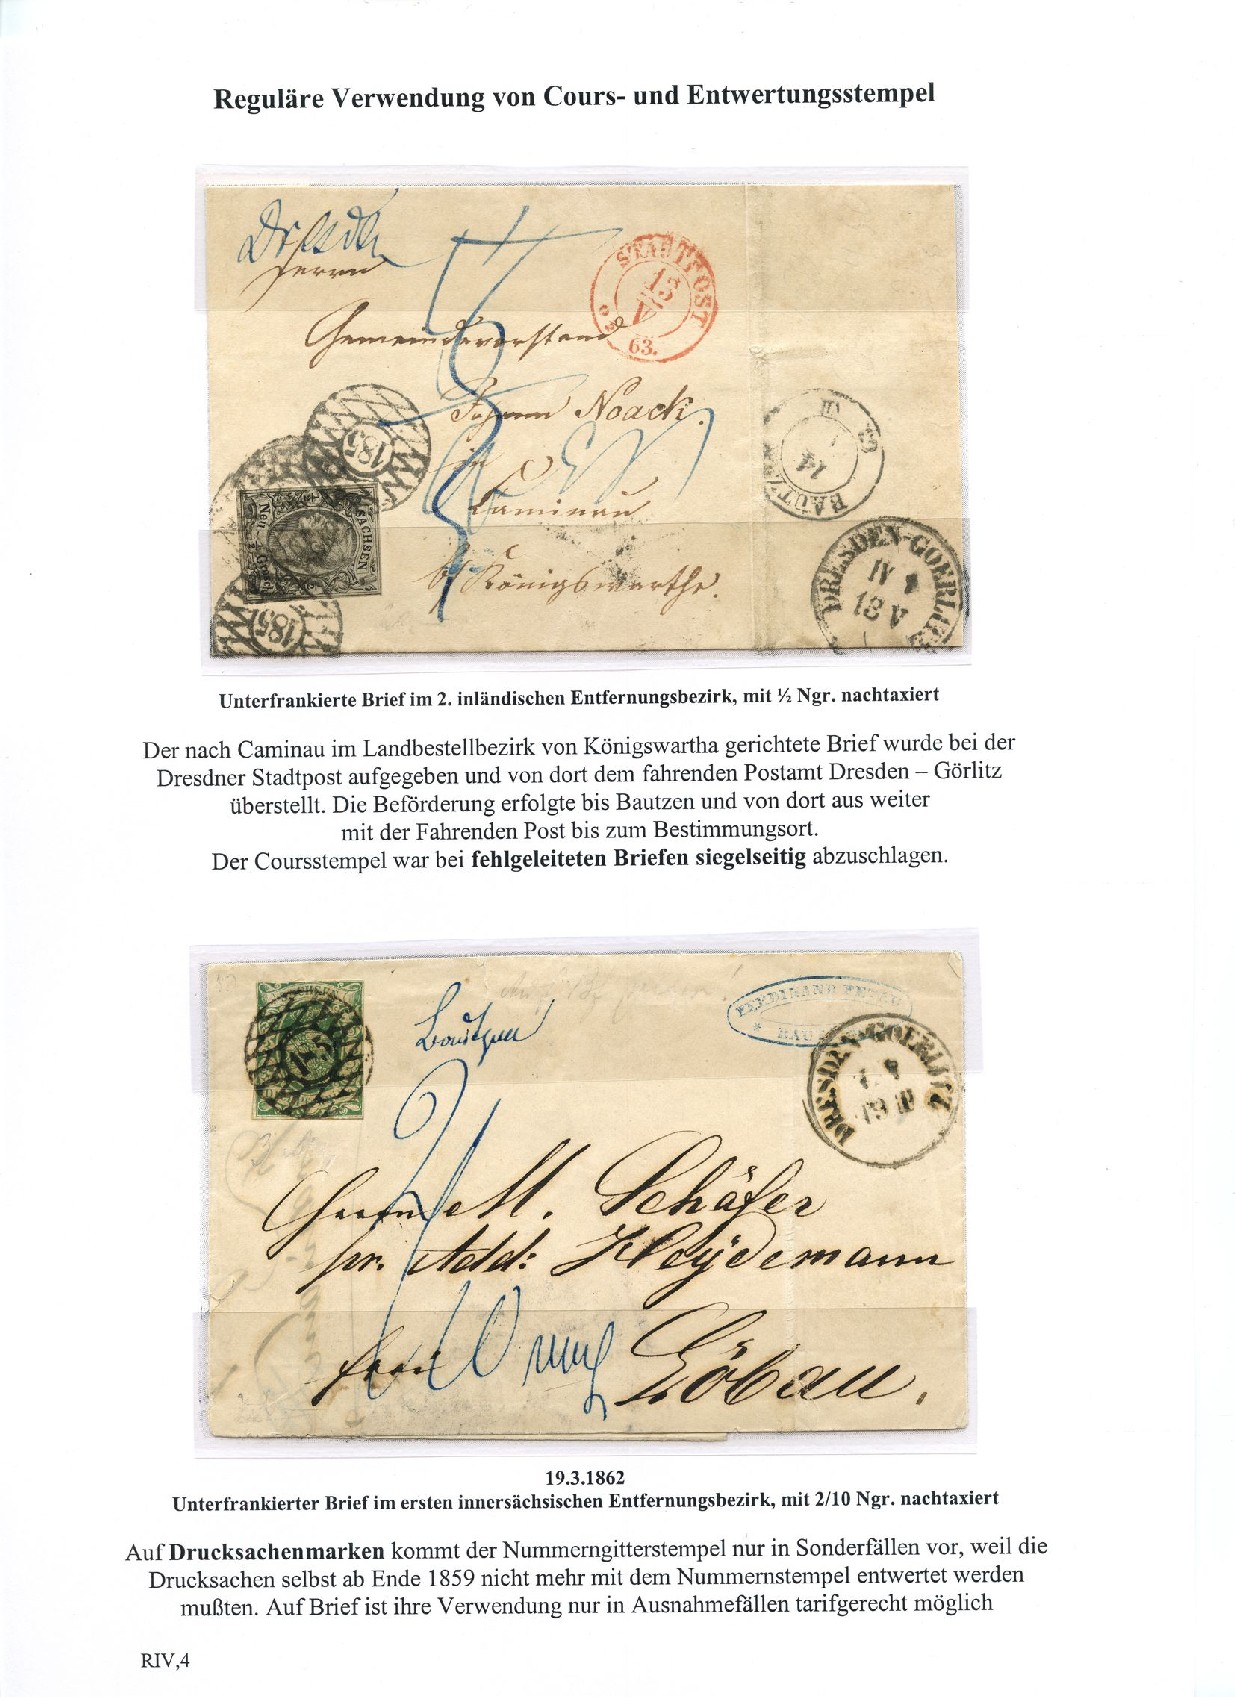 Reguläre Verwendung von Cours- und Entwertungsstempel
Dresden
Herrn
STADTPOST
13
63.
Gemeindevorstand
Johann Noack.
in
Caminau
b/ Königswartha.
185
185
SACHSEN
Neu-Grosch.
BAUTZ
14
III
63
DRESDEN-GOERLITZ
IV
13 V
Unterfrankierte Brief im 2. inländischen Entfernungsbezirk, mit ½ Ngr. nachtaxiert
Der nach Caminau im Landbestellbezirk von Königswartha gerichtete Brief wurde bei der
Dresdner Stadtpost aufgegeben und von dort dem fahrenden Postamt Dresden – Görlitz
überstellt. Die Beförderung erfolgte bis Bautzen und von dort aus weiter
mit der Fahrenden Post bis zum Bestimmungsort.
Der Coursstempel war bei fehlgeleiteten Briefen siegelseitig abzuschlagen.
Bautzen
FERDINAND
BAU
DRESDEN-GOERLITZ
19 III
Herrn M. Schäfer
pr. Add: Heydemann
frei
Löbau.
19.3.1862
Unterfrankierter Brief im ersten innersächsischen Entfernungsbezirk, mit 2/10 Ngr. nachtaxiert
Auf Drucksachenmarken kommt der Nummerngitterstempel nur in Sonderfällen vor, weil die
Drucksachen selbst ab Ende 1859 nicht mehr mit dem Nummernstempel entwertet werden
mußten. Auf Brief ist ihre Verwendung nur in Ausnahmefällen tarifgerecht möglich
RIV,4